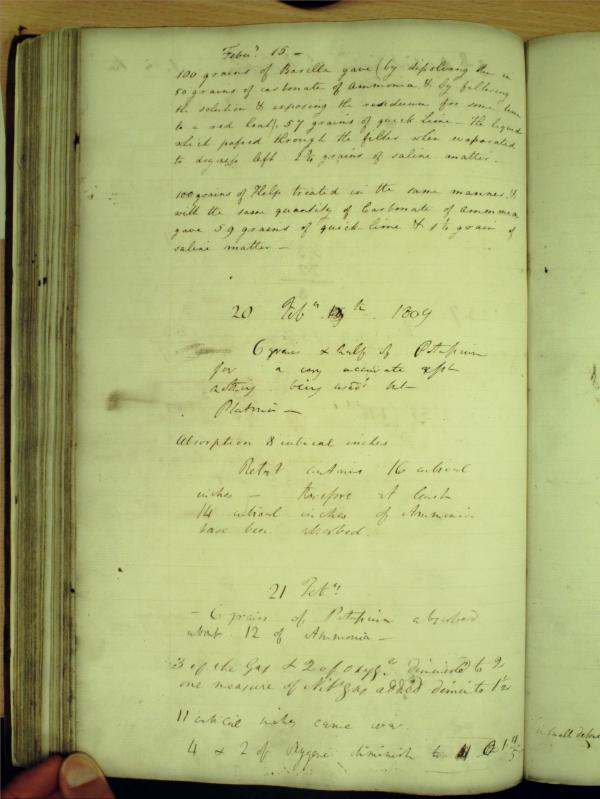 Feby. 15. –
100 grains of Barilla gave (by dissolving them in
50 grains of carbonate of Ammonia & by filtering
the solution & exposing the residuum for some time
to a red heat). 57 grains of quick Lime – The liquid
which passed through the filter when evaporated
to dryness left 2½ grains of saline matter –
100 grains of Kelp treated in the same manner, &
with the same quantity of Carbonate of Ammonia
gave 59 grains of quick-lime & 1½ grain of
saline matter –
20 Feby. 19th. 1809
6 grains & half of Potassium
for a very accurate expt
nothing being used but
Platina –
Absorption 8 cubical inches
Retort contains 16 cubical
inches – therefore at least
14 cubical inches of Ammonia
have been absorbed.
21 Feby.
– 6 grains of Potassium absorbed
about 12 of Ammonia –
3 of the Gas & 2 of Oxygn diminishd to
one measure of Nits gas added dimin to
11 cubical inches came over
4 & 2 of Oxygene diminish to
small